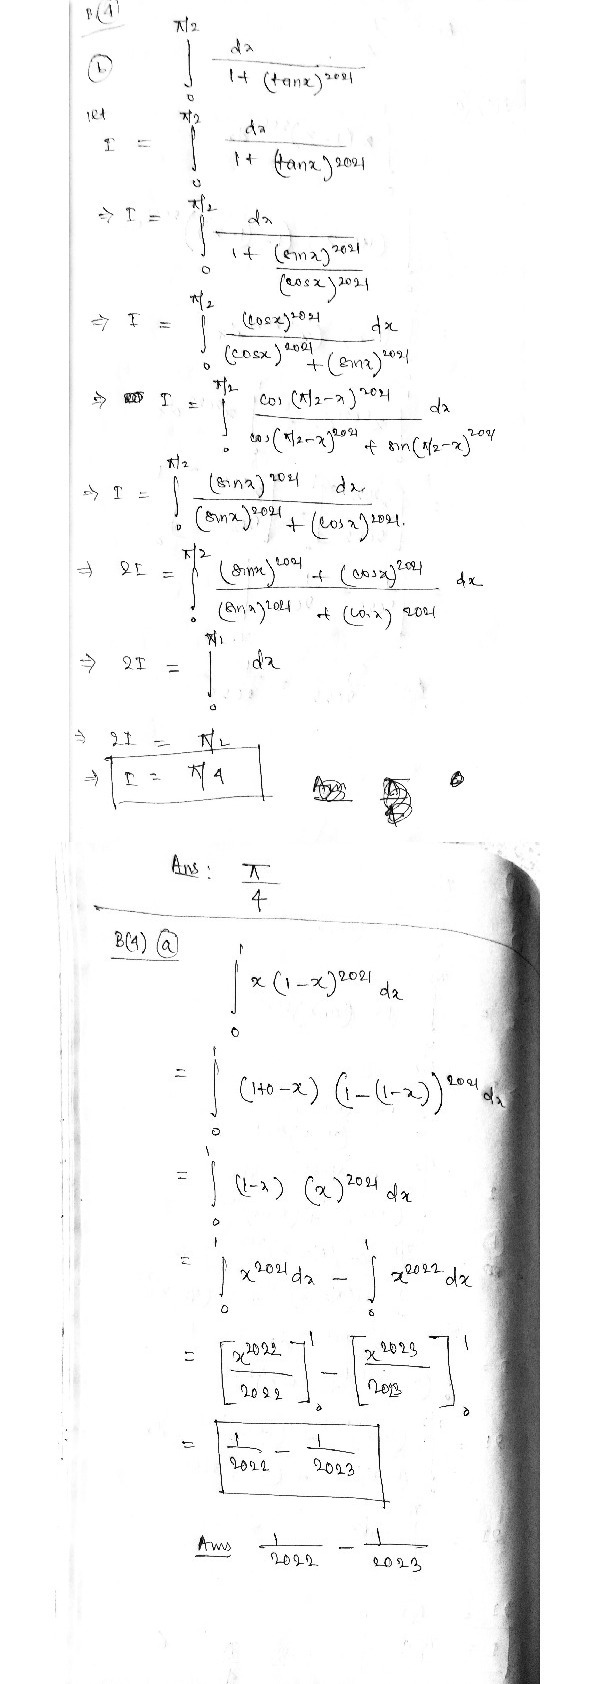 B(4)
(b) ∫₀^{π/2} dx / (1 + (tanx)^{2021})
let
I = ∫₀^{π/2} dx / (1 + (tanx)^{2021})
⇒ I = ∫₀^{π/2} dx / (1 + (sinx)^{2021} / (cosx)^{2021})
⇒ I = ∫₀^{π/2} (cosx)^{2021} / ((cosx)^{2021} + (sinx)^{2021}) dx
⇒ I = ∫₀^{π/2} cos(π/2-x)^{2021} / (cos(π/2-x)^{2021} + sin(π/2-x)^{2021}) dx
⇒ I = ∫₀^{π/2} (sinx)^{2021} dx / ((sinx)^{2021} + (cosx)^{2021}).
⇒ 2I = ∫₀^{π/2} ((sinx)^{2021} + (cosx)^{2021}) / ((sinx)^{2021} + (cosx)^{2021}) dx
⇒ 2I = ∫₀^{π/2} dx
⇒ 2I = π/2
⇒ I = π/4
Ans: π/4
B(4) (a)
∫₀^1 x(1-x)^{2021} dx
= ∫₀^1 (1+0-x) (1-(1-x))^{2021} dx
= ∫₀^1 (1-x) (x)^{2021} dx
= ∫₀^1 x^{2021} dx - ∫₀^1 x^{2022} dx
= [x^{2022} / 2022]₀^1 - [x^{2023} / 2023]₀^1
= 1/2022 - 1/2023
Ans 1/2022 - 1/2023